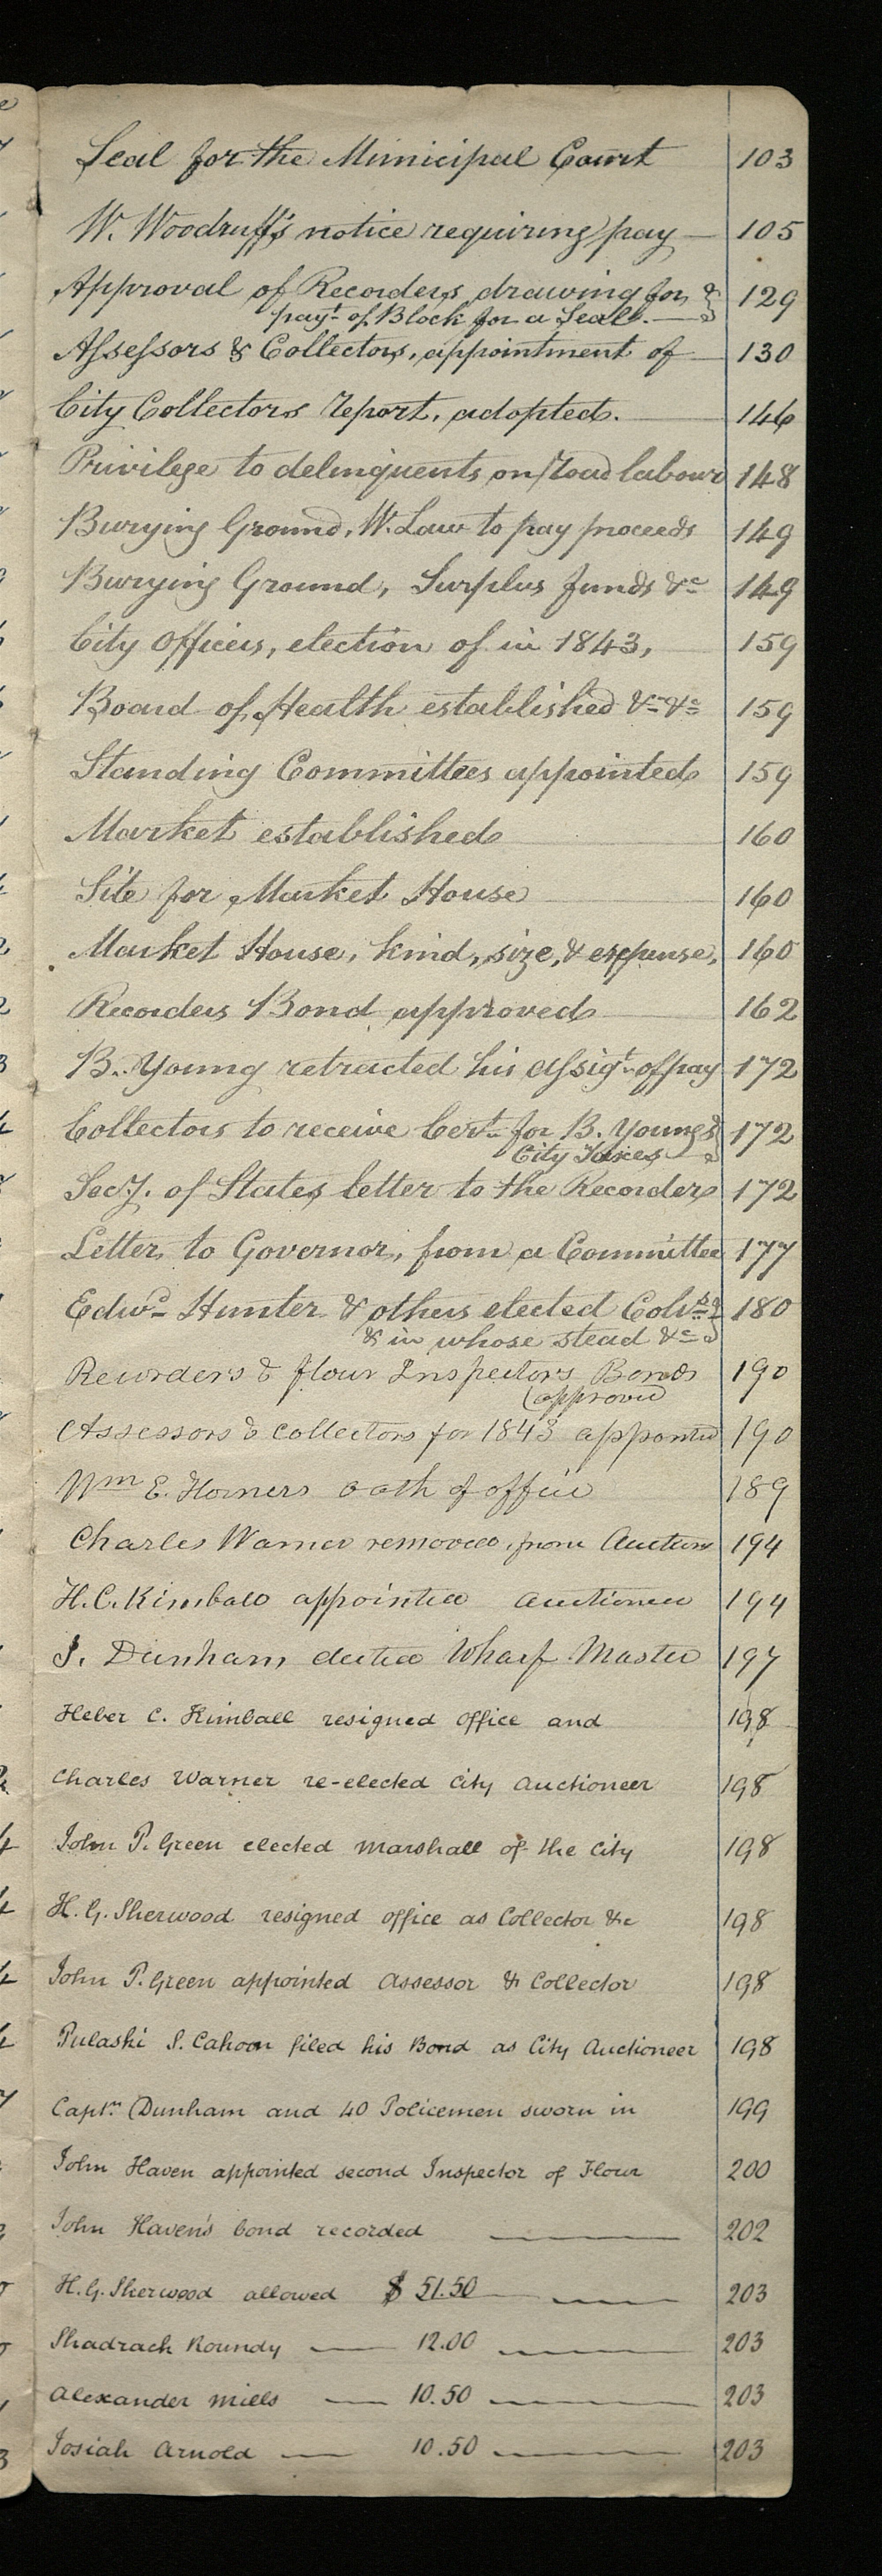 Seal for the Municipal Court 103
W. Woodruff's notice requiring pay — 105
Approval of Recorders drawing for 129
payt of Block for a Seal. —
Assessors & Collectors, appointment of — 130
City Collectors report, adopted. 146
Privilege to delinquents on road labour 148
Burying Ground, W. Law to pay proceeds 149
Burying Ground, Surplus funds &c 149
City Officers, election of in 1843, 159
Board of Health established &c &c 159
Standing Committees appointed 159
Market established 160
Site for Market House 160
Market House, kind, size, & expense, 160
Recorders Bond approved 162
B. Young retracted his assigt of pay 172
Collectors to receive Cert. for B. Youngs 172
City Taxes —
Secy. of States letter to the Recorder 172
Letter to Governor, from a Committee 177
Edwd Hunter & others elected Colrs 180
& in whose stead &c
Recorders & flour Inspectors Bonds 190
(approved
Assessors & Collectors for 1843 appointed 190
Wm E. Horners oath of office 189
Charles Warner removed, from Auctionr 194
H. C. Kimball appointed auctioneer 194
J. Dunham elected Wharf Master 197
Heber C. Kimball resigned office and 198
Charles Warner re-elected City Auctioneer 198
John P. Green elected Marshall of the City 198
H. G. Sherwood resigned office as Collector &c 198
John P. Green appointed Assessor & Collector 198
Pulaski S. Cahoon filed his Bond as City Auctioneer 198
Captn Dunham and 40 Policemen sworn in 199
John Haven appointed second Inspector of Flour 200
John Haven's bond recorded — 202
H. G. Sherwood allowed $ 51.50 — 203
Shadrach Roundy — 12.00 — 203
Alexander Mills — 10.50 — 203
Josiah Arnold — 10.50 — 203